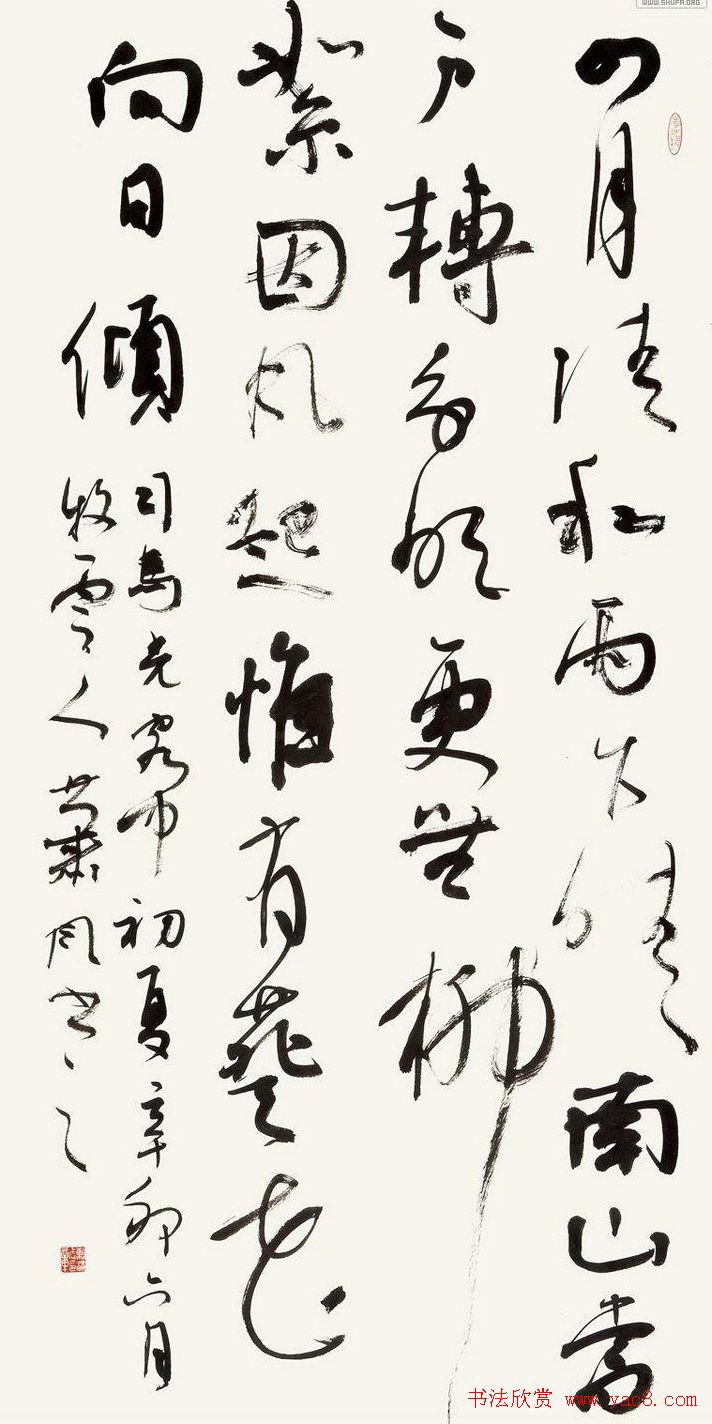 四月清和雨乍晴南山當
户轉分明更無柳
絮因風起惟有葵花
向日傾
司馬光客中初夏辛卯六月
牧雲人蕭風書之
WWW.SHUFA.ORG
书法欣赏 www.yac8.com